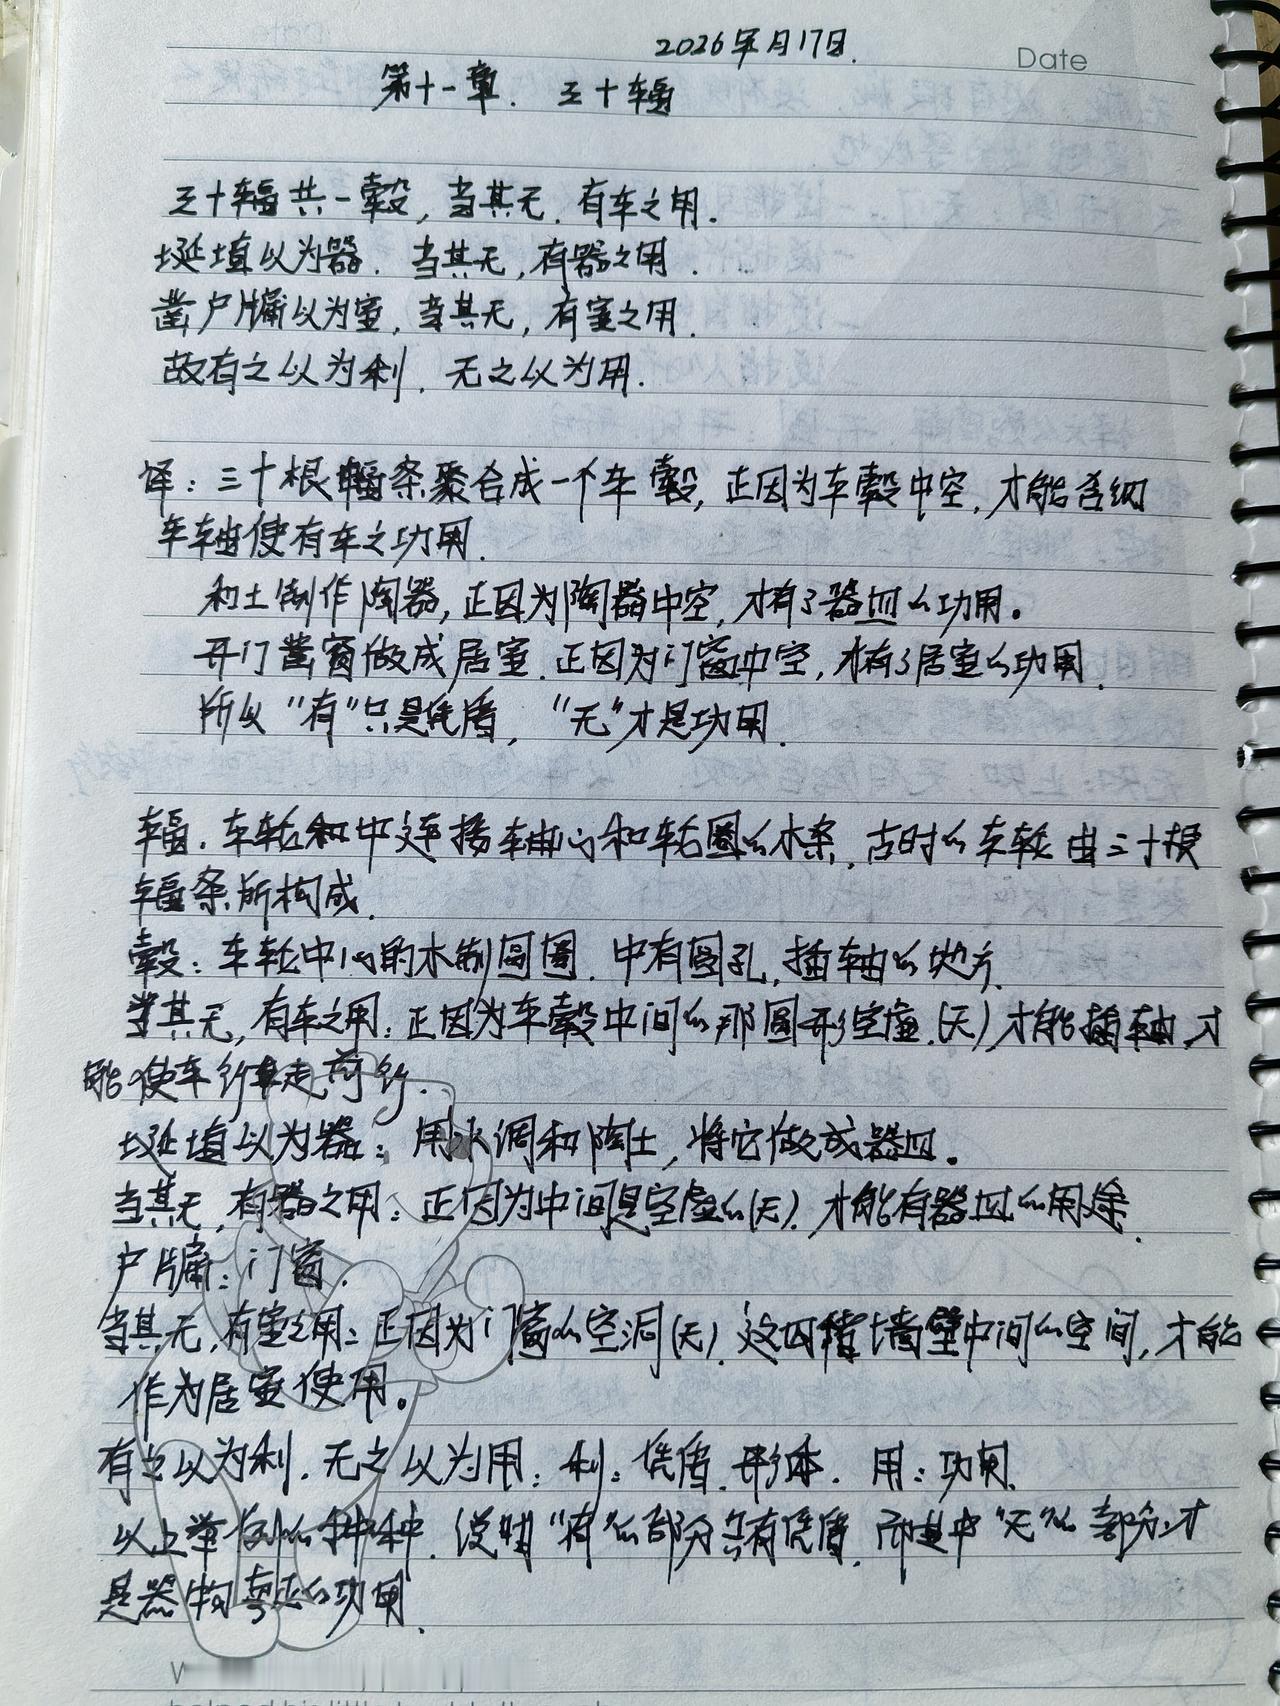 2026年月17日.
Date
第十一章. 三十辐
三十辐共一毂,当其无.有车之用.
埏埴以为器.当其无,有器之用.
凿户牖以为室,当其无,有室之用.
故有之以为利.无之以为用.
译:三十根辐条聚合成一个车毂,正因为车毂中空,才能容纳
车轴使有车之功用.
和土制作陶器,正因为陶器中空,才有了器皿的功用。
开门凿窗做成居室.正因为门窗中空,才有了居室的功用.
所以“有”只是凭借,“无”才是功用.
辐.车轮和中连接轴心和轮圈的木条,古时的车轮由三十根
辐条所构成.
毂:车轮中心的木制圆圈.中有圆孔,插轴的地方
当其无,有车之用:正因为车毂中间的那圆形空虚.(无)才能插轴,才
能使车行走前行.
埏埴以为器:用水调和陶土,将它做成器皿。
当其无,有器之用:正因为中间是空虚的(无).才能有器皿的用途
户牖:门窗.
当其无,有室之用:正因为门窗的空洞(无).这四墙壁中间的空间,才能
作为居室使用。
有之以为利.无之以为用:利:凭借.形体. 用:功用.
以上举例的种种.说明“有”的部分只有凭借.而其中“无”的部分才
是器物的功用.